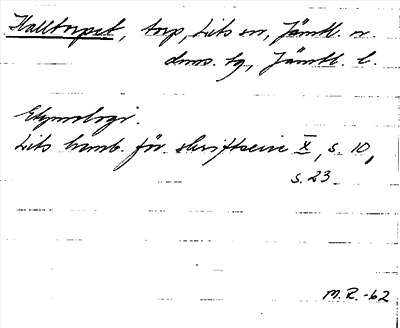 Halltorpet, torp, Lits sn, Jämtl. n.
doms. tg, Jämtl. l.
Etymologi.
Lits hemb. för. skriftserie X, s. 10,
s. 23
M.R.-62